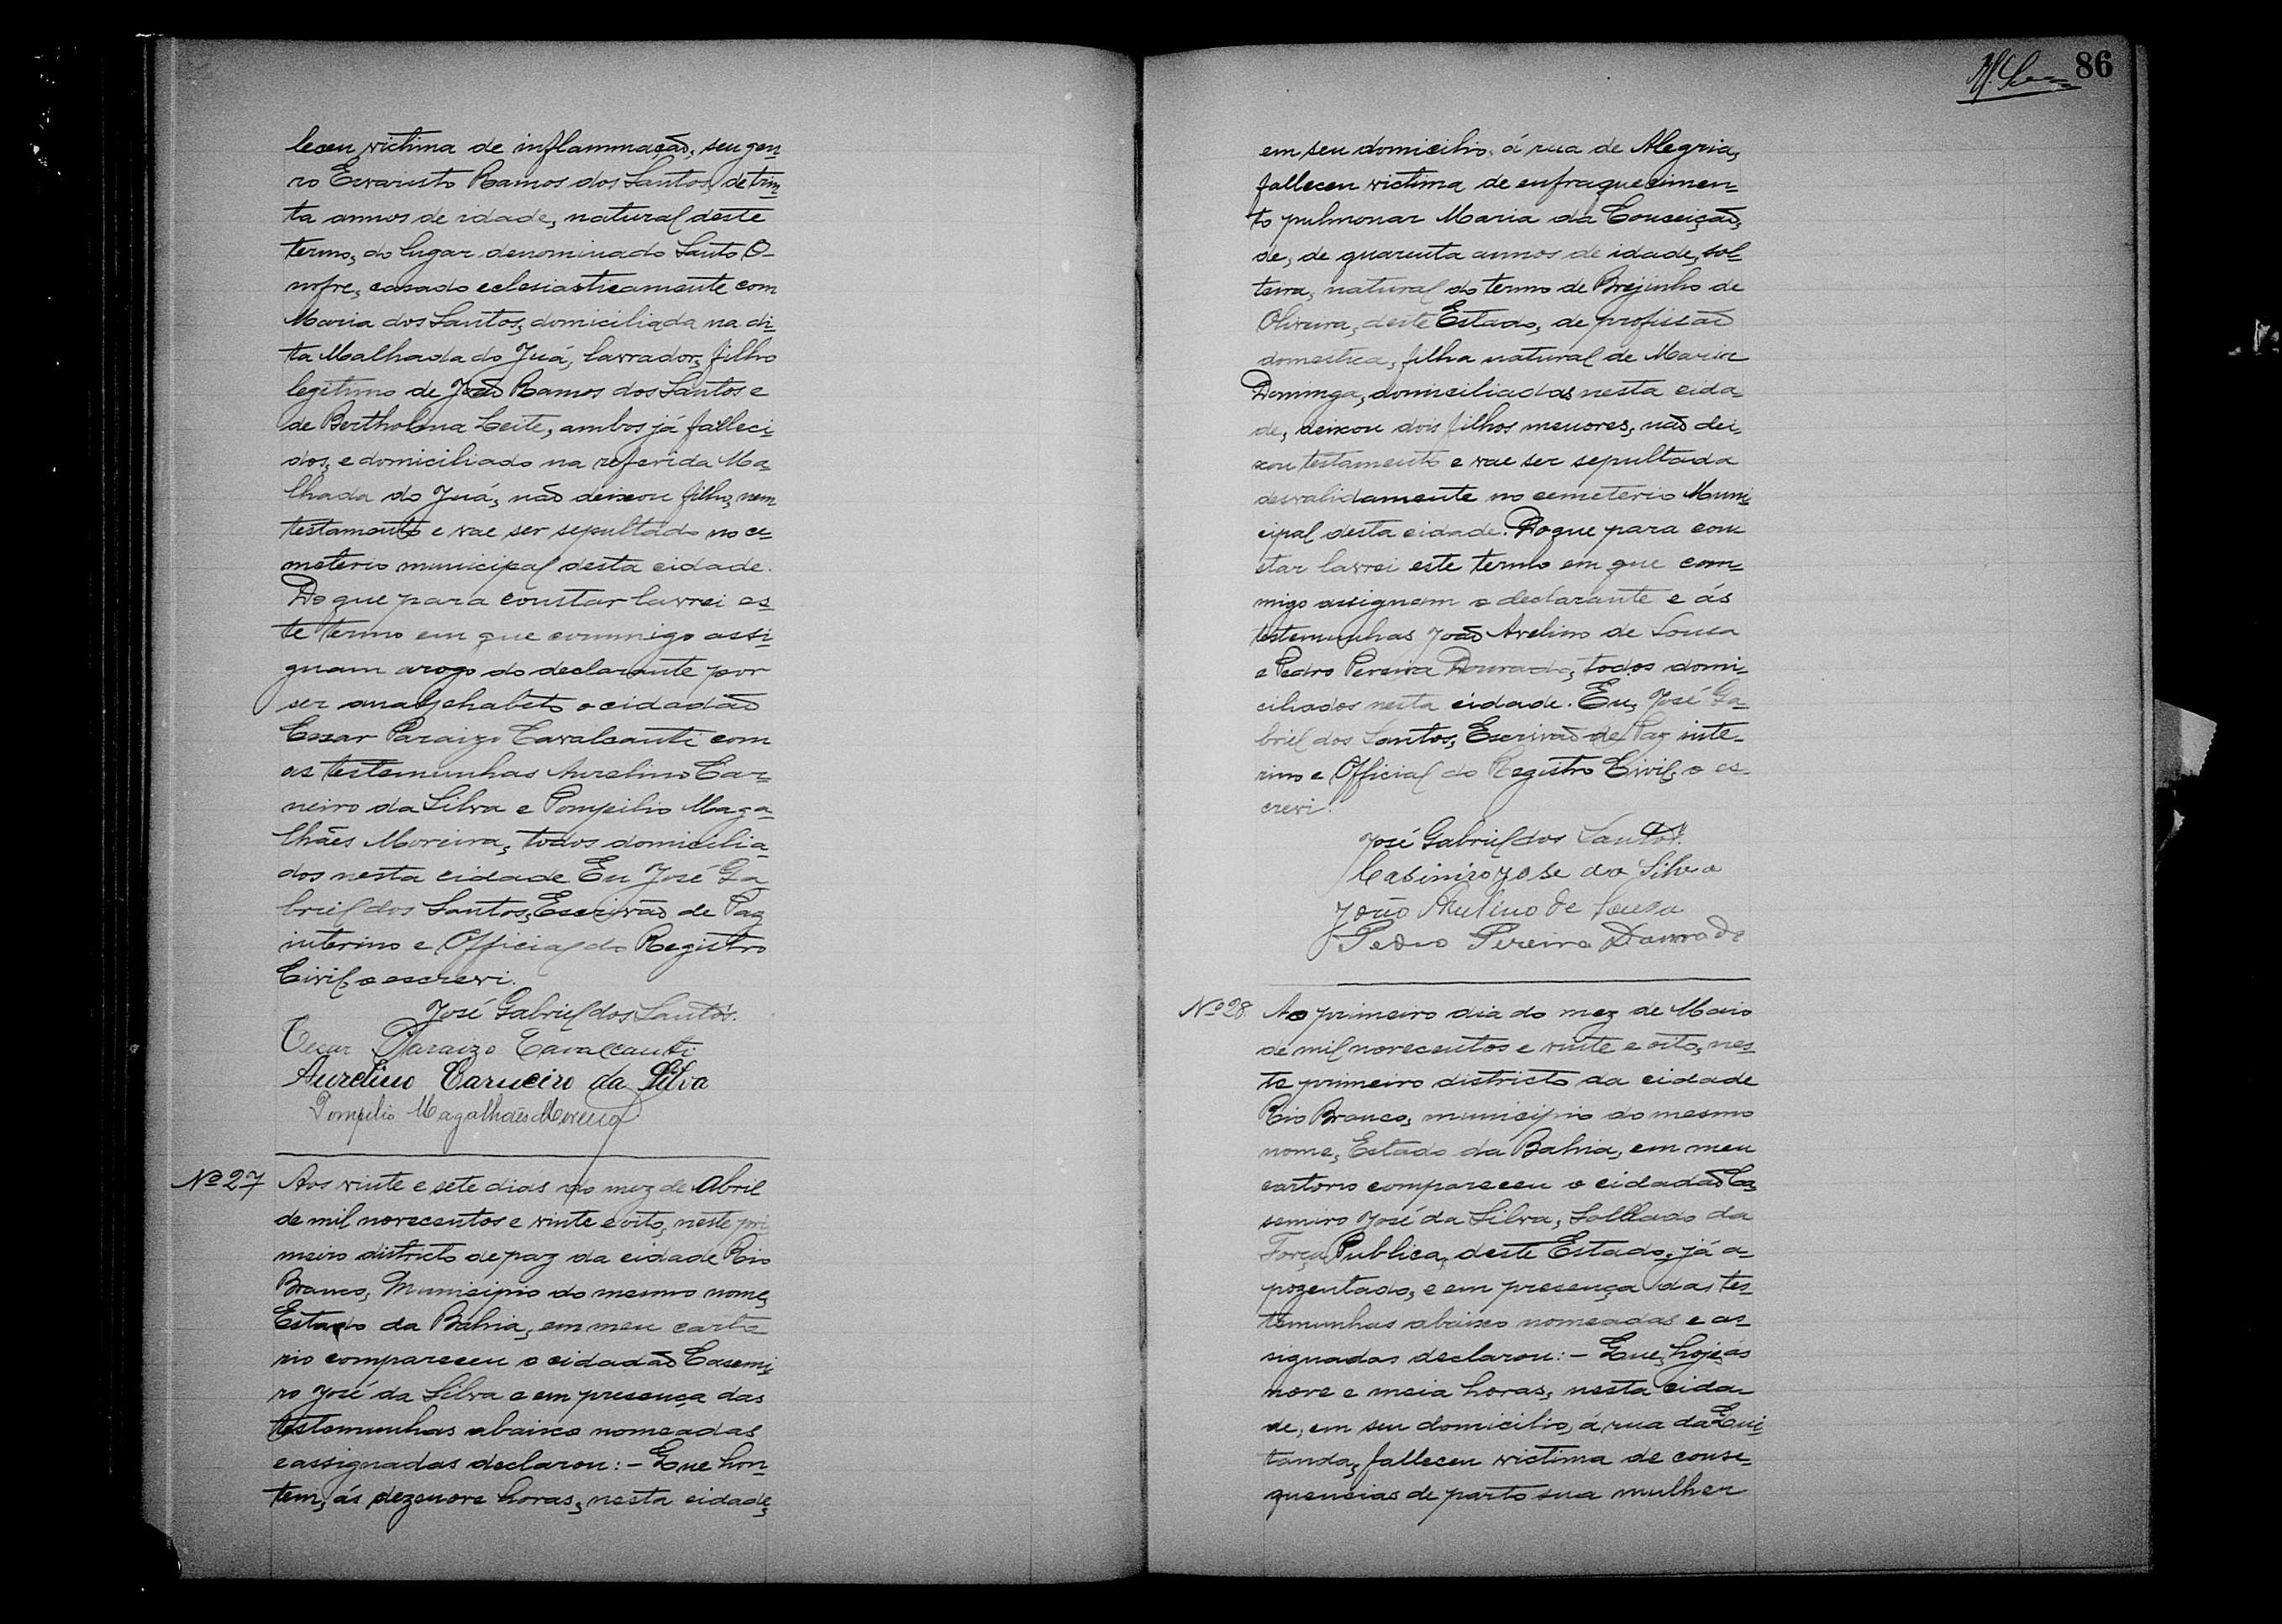 leceu victima de inflammação, seu gen-
ro Evaristo Ramos dos Santos, de trin-
ta annos de idade, natural deste
termo, do lugar denominado Santo O-
nofre, casado eclesiasticamente com
Maria dos Santos, domiciliada na di-
ta Malhada do Juá, lavrador, filho
legitimo de João Ramos dos Santos e
de Bertholina Leite, ambos já falleci-
dos, e domiciliado na referida Ma-
lhada do Juá, não deixou filho, nem
testamento e vae ser sepultado no ce-
meterio municipal desta cidade.
Do que para constar lavrei es-
te termo em que commigo assi-
gnam arogo do declarante por
ser analphabeto o cidadão
Cesar Paraizo Cavalcanti com
as testemunhas Aurelino Car-
neiro da Silva e Pompilio Maga-
lhães Moreira, todos domicilia-
dos nesta cidade Eu José Ga-
briel dos Santos, Escrivão de Paz
interino e Official do Registro
Civil, o escrevi.
José Gabriel dos Santos.
Cesar Paraizo Cavalcanti
Aurelino Carneiro da Silva
Pompilio Magalhães Moreira
Nº 27 Aos vinte e sete dias do mez de Abril
de mil novecentos e vinte e oito, neste pri
meiro districto de paz da cidade Rio
Branco, Municipio do mesmo nome,
Estado da Bahia, em meu carto
rio compareceu o cidadão Casemi-
ro José da Silva e em presença das
testemunhas abaixo nomeadas
e assignadas declarou: - Que hon-
tem, ás dezenove horas, nesta cidade,
86
em seu domicilio, á rua de Alegria,
falleceu victima de enfraquecimen-
to pulmonar Maria da Conceição,
de, de quarenta annos de idade, sol-
teira, natural do termo de Brejinho de
Oliveira, deste Estado, de profissão
domestica, filha natural de Maria
Dominga, domiciliadas nesta cida-
de, deixou dois filhos menores, não dei-
xou testamento e vae ser sepultada
desvalidamente no cemeterio Muni-
cipal desta cidade. Do que para con
star lavrei este termo em que com-
migo assignam o declarante e ás
testemunhas João Avelino de Sousa
e Pedro Pereira Dourado, todos domi-
ciliados nesta cidade. Eu, José Ga-
briel dos Santos, Escrivão de Paz inte-
rino e Official do Registro Civil, o es-
crevi.
José Gabriel dos Santos.
Casimiro Jose da Silva
João Avelino de Souza
Pedro Pereira Dourado
Nº 28. Ao primeiro dia do mez de Maio
de mil novecentos e vinte e oito, nes-
te primeiro districto da cidade
Rio Branco, municipio do mesmo
nome, Estado da Bahia, em meu
cartorio compareceu o cidadão Ca-
semiro José da Silva, Solldado da
Força Publica, deste Estado, já a-
pozentado, e em presença das tes-
temunhas abaixo nomeadas e as-
signadas declarou: - Que, hoje ás
nove e meia horas, nesta cida-
de, em seu domicilio, á rua da Qui-
tanda, falleceu victima de conse-
quencias de parto sua mulher